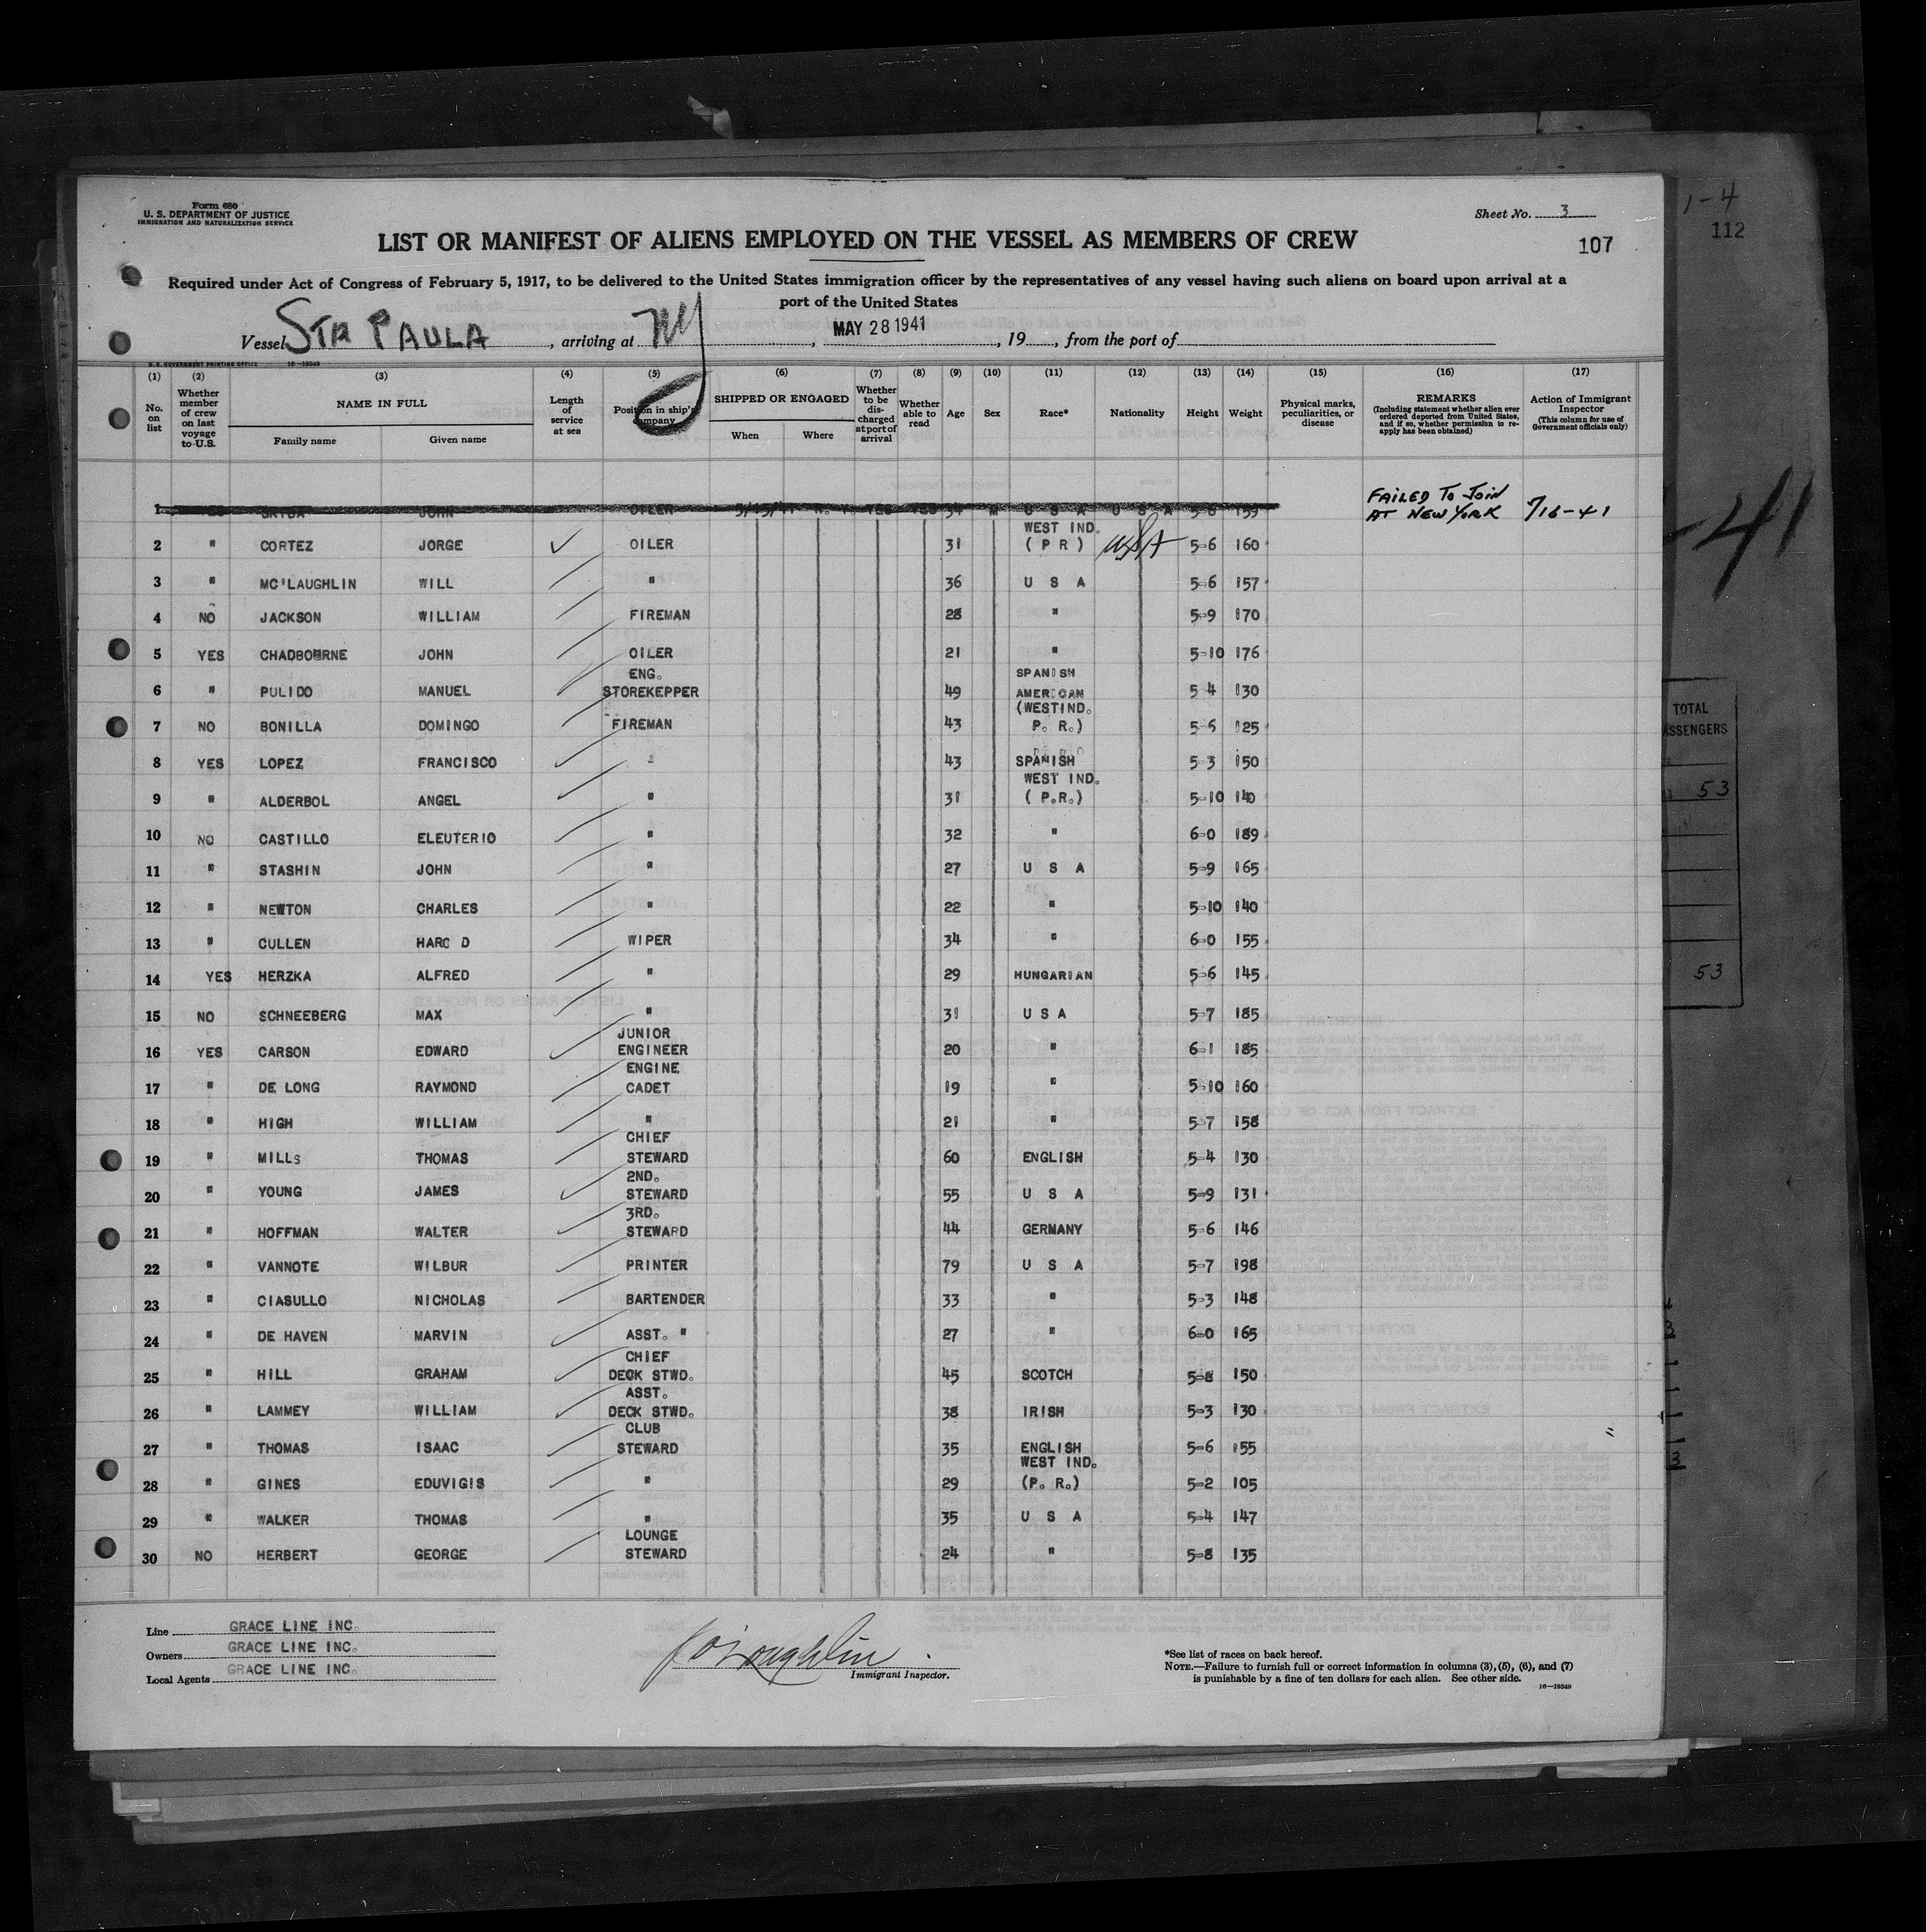 Form 680
U. S. DEPARTMENT OF JUSTICE
IMMIGRATION AND NATURALIZATION SERVICE
Sheet No. 3
1-4
112
LIST OR MANIFEST OF ALIENS EMPLOYED ON THE VESSEL AS MEMBERS OF CREW
107
Required under Act of Congress of February 5, 1917, to be delivered to the United States immigration officer by the representatives of any vessel having such aliens on board upon arrival at a
port of the United States
Vessel STA PAULA, arriving at NY, MAY 28 1941, 19, from the port of
U.S. GOVERNMENT PRINTING OFFICE 16-19349
(1) (2) (3) (4) (5) (6) (7) (8) (9) (10) (11) (12) (13) (14) (15) (16) (17)
No. on list
Whether member of crew on last voyage to U.S.
NAME IN FULL
Family name
Given name
Length of service at sea
Position in ship's company
SHIPPED OR ENGAGED
When
Where
Whether to be discharged at port of arrival
Whether able to read
Age
Sex
Race*
Nationality
Height
Weight
Physical marks, peculiarities, or disease
REMARKS
(Including statement whether alien ever ordered deported from United States, and if so, whether permission to reapply has been obtained)
Action of Immigrant Inspector
(This column for use of Government officials only)
1 JOHN OILER N. Y. YES YES 34 M U S A U S A 5-8 159 FAILED TO JOIN AT NEW YORK 7/16-41
2 " CORTEZ JORGE OILER 31 WEST IND. (PR) USA 5-6 160
3 " MC'LAUGHLIN WILL " 36 U S A 5-6 157
4 NO JACKSON WILLIAM FIREMAN 28 " 5-9 170
5 YES CHADBOURNE JOHN OILER 21 " 5-10 176
6 " PULIDO MANUEL ENG. STOREKEPPER 49 SPANISH AMERICAN 5-4 130
7 NO BONILLA DOMINGO FIREMAN 43 (WESTIND. P. R.) 5-6 125
8 YES LOPEZ FRANCISCO " 43 SPANISH 5-3 150
9 " ALDERBOL ANGEL " 31 WEST IND. (P.R.) 5-10 140
10 NO CASTILLO ELEUTERIO " 32 " 6-0 189
11 " STASHIN JOHN " 27 U S A 5-9 165
12 " NEWTON CHARLES " 22 " 5-10 140
13 " CULLEN HARO D WIPER 34 " 6-0 155
14 YES HERZKA ALFRED " 29 HUNGARIAN 5-6 145
15 NO SCHNEEBERG MAX " 31 U S A 5-7 185
16 YES CARSON EDWARD JUNIOR ENGINEER 20 " 6-1 185
17 " DE LONG RAYMOND ENGINE CADET 19 " 5-10 160
18 " HIGH WILLIAM " 21 " 5-7 158
19 " MILLs THOMAS CHIEF STEWARD 60 ENGLISH 5-4 130
20 " YOUNG JAMES 2ND. STEWARD 55 U S A 5-9 131
21 " HOFFMAN WALTER 3RD. STEWARD 44 GERMANY 5-6 146
22 " VANNOTE WILBUR PRINTER 79 U S A 5-7 198
23 " CIASULLO NICHOLAS BARTENDER 33 " 5-3 148
24 " DE HAVEN MARVIN ASST. " 27 " 6-0 165
25 " HILL GRAHAM CHIEF DECK STWD. 45 SCOTCH 5-8 150
26 " LAMMEY WILLIAM ASST. DECK STWD. 38 IRISH 5-3 130
27 " THOMAS ISAAC CLUB STEWARD 35 ENGLISH 5-6 155
28 " GINES EDUVIGIS " 29 WEST IND. (P. R.) 5-2 105
29 " WALKER THOMAS " 35 U S A 5-4 147
30 NO HERBERT GEORGE LOUNGE STEWARD 24 " 5-8 135
-41
TOTAL
53
53
Line GRACE LINE INC.
Owners GRACE LINE INC.
Local Agents GRACE LINE INC.
Immigrant Inspector.
*See list of races on back hereof.
NOTE.—Failure to furnish full or correct information in columns (3), (5), (6), and (7)
is punishable by a fine of ten dollars for each alien. See other side.
16—19349